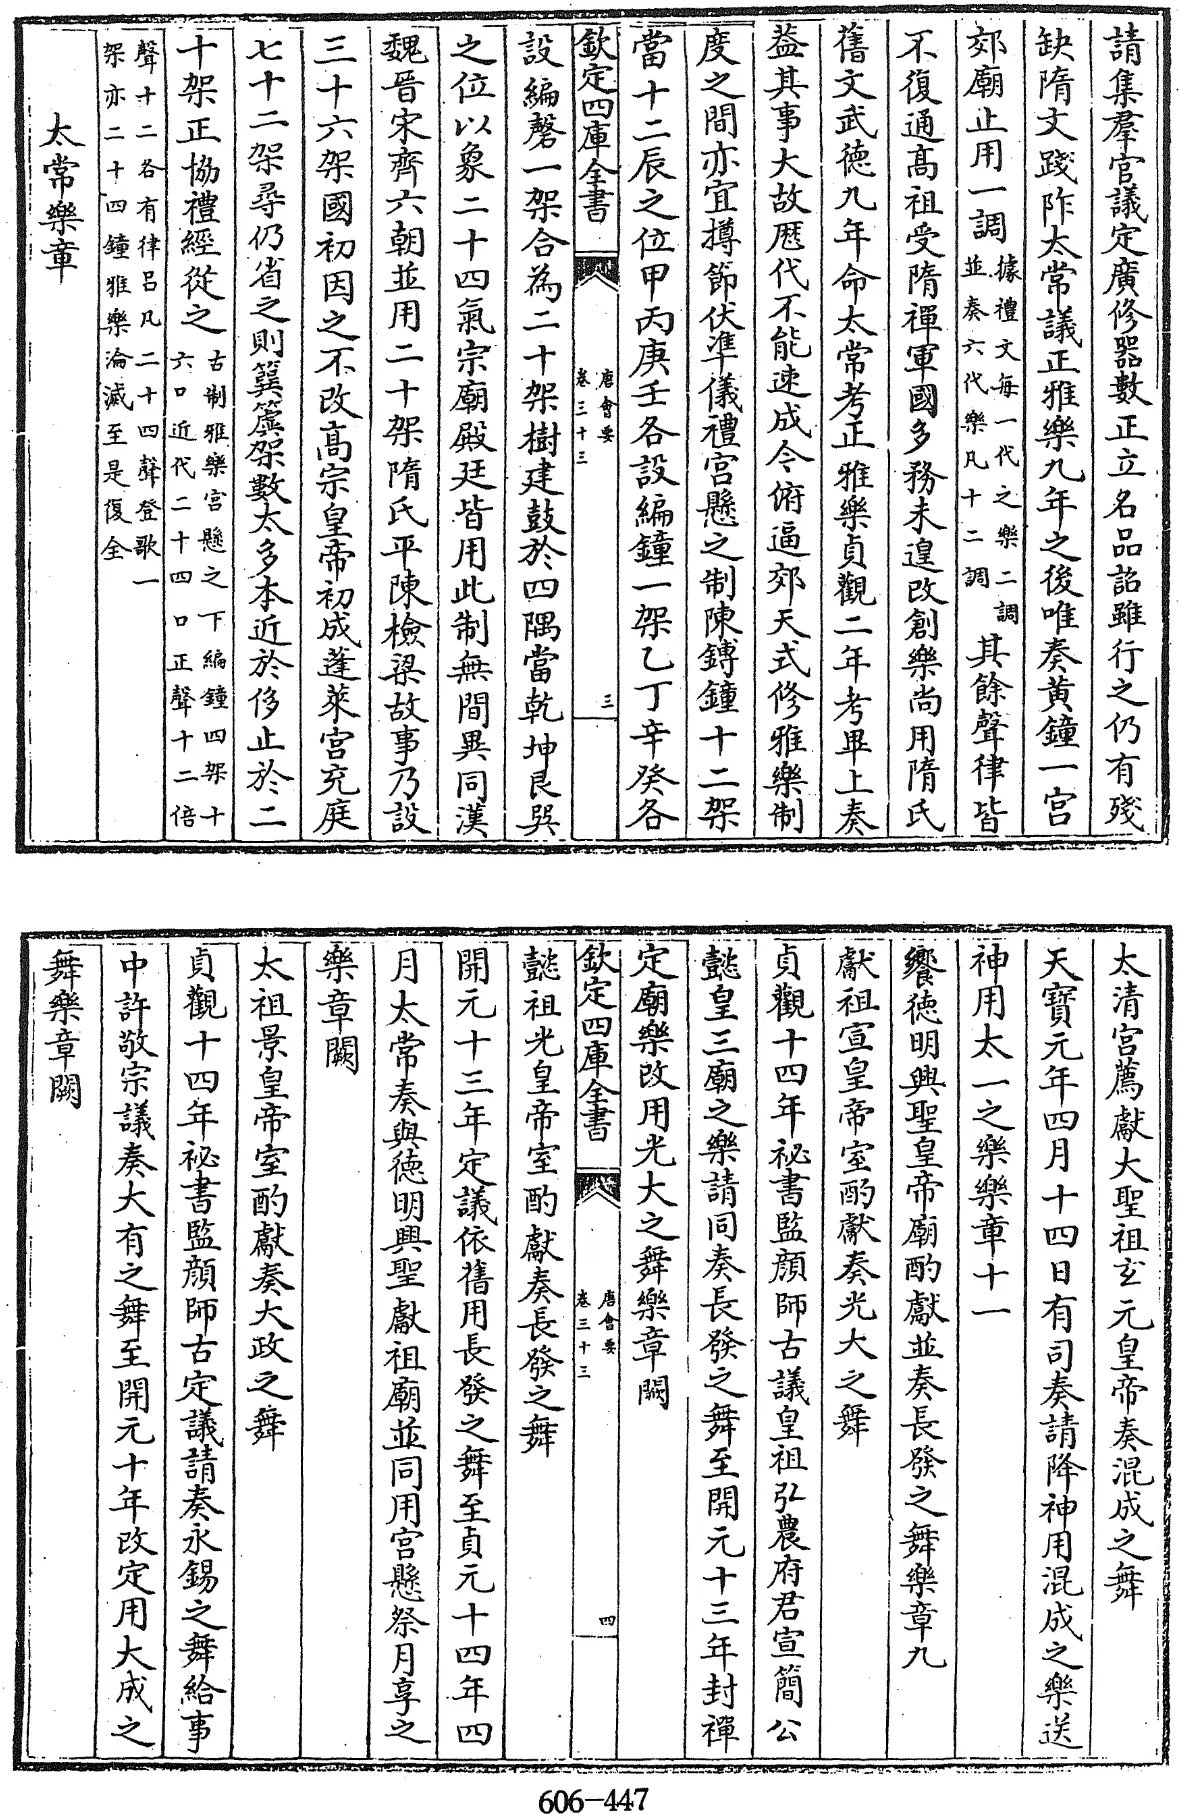 請集羣官議定廣修器數正立名品詔雖行之仍有殘
缺隋文踐阼太常議正雅樂九年之後唯奏黃鐘一宮
郊廟止用一調據禮文每一代之樂二調並奏六代樂凡十二調其餘聲律皆
不復通高祖受隋禪軍國多務未遑改創樂尚用隋氏
舊文武德九年命太常考正雅樂貞觀二年考畢上奏
葢其事大故歴代不能速成今俯逼郊天式修雅樂制
度之間亦宜撙節伏準儀禮宮懸之制陳鎛鐘十二架
當十二辰之位甲丙庚壬各設編鐘一架乙丁辛癸各
欽定四庫全書
唐會要
卷三十三
三
設編磬一架合為二十架樹建鼓於四隅當乾坤艮巽
之位以象二十四氣宗廟殿廷皆用此制無間異同漢
魏晉宋齊六朝並用二十架隋氏平陳檢梁故事乃設
三十六架國初因之不改高宗皇帝初成蓬萊宮充庭
七十二架尋仍省之則簨簴架數太多本近於侈止於二
十架正協禮經從之古制雅樂宮懸之下編鐘四架十六口近代二十四口正聲十二倍
聲十二各有律呂凡二十四聲登歌一架亦二十四鐘雅樂淪滅至是復全
太常樂章
太清宮薦獻大聖祖玄元皇帝奏混成之舞
天寶元年四月十四日有司奏請降神用混成之樂送
神用太一之樂樂章十一
饗德明興聖皇帝廟酌獻並奏長發之舞樂章九
獻祖宣皇帝室酌獻奏光大之舞
貞觀十四年祕書監顏師古議皇祖弘農府君宣簡公
懿皇三廟之樂請同奏長發之舞至開元十三年封禪
定廟樂改用光大之舞樂章闕
欽定四庫全書
唐會要
卷三十三
四
懿祖光皇帝室酌獻奏長發之舞
開元十三年定議依舊用長發之舞至貞元十四年四
月太常奏與德明興聖獻祖廟並同用宮懸祭月享之
樂章闕
太祖景皇帝室酌獻奏大政之舞
貞觀十四年祕書監顏師古定議請奏永錫之舞給事
中許敬宗議奏大有之舞至開元十年改定用大成之
舞樂章闕
606-447